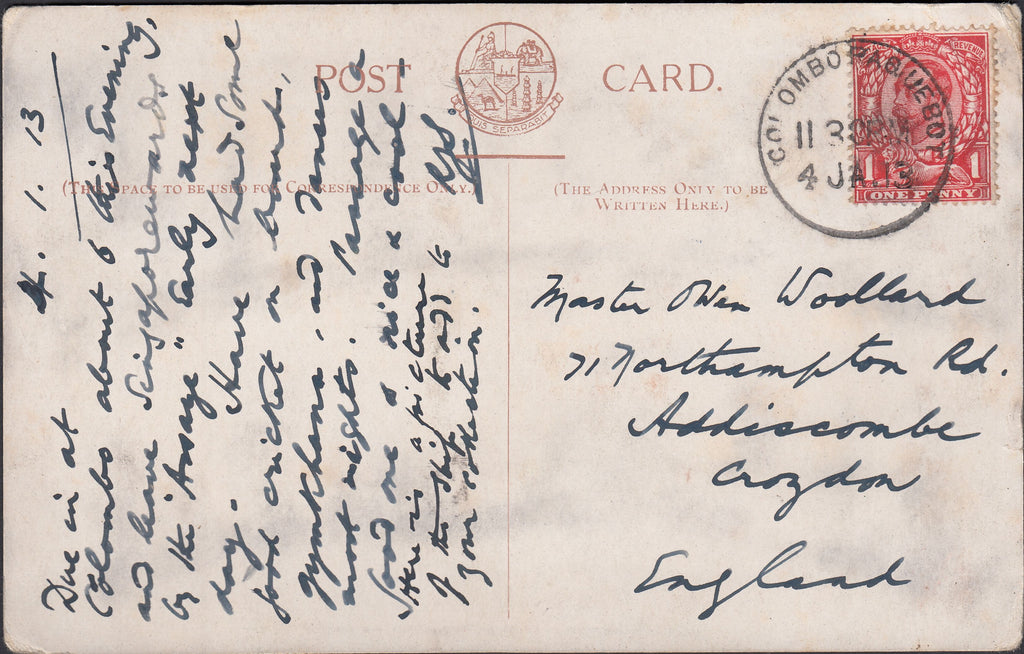 POST CARD.
QUIS SEPARABIT
(THIS SPACE TO BE USED FOR CORRESPONDENCE ONLY.)
(THE ADDRESS ONLY TO BE
WRITTEN HERE.)
4. 1. 13
Due in at
Colombo about 6 this Evening,
and leave Singaporewards
by the "Assaye" Early next
day. Have had Some
good cricket on board,
Gymkhana, and Dances
most nights. Passage a
Good one & nice & cool –
Here is a picture
of the ship to add to
your collection.
COLOMBO PAQUEBOT
11 30
4 JA 13
REVENUE
1 1
ONE PENNY
Master Owen Woollard
71 Northampton Rd.
Addiscombe
Croydon
England